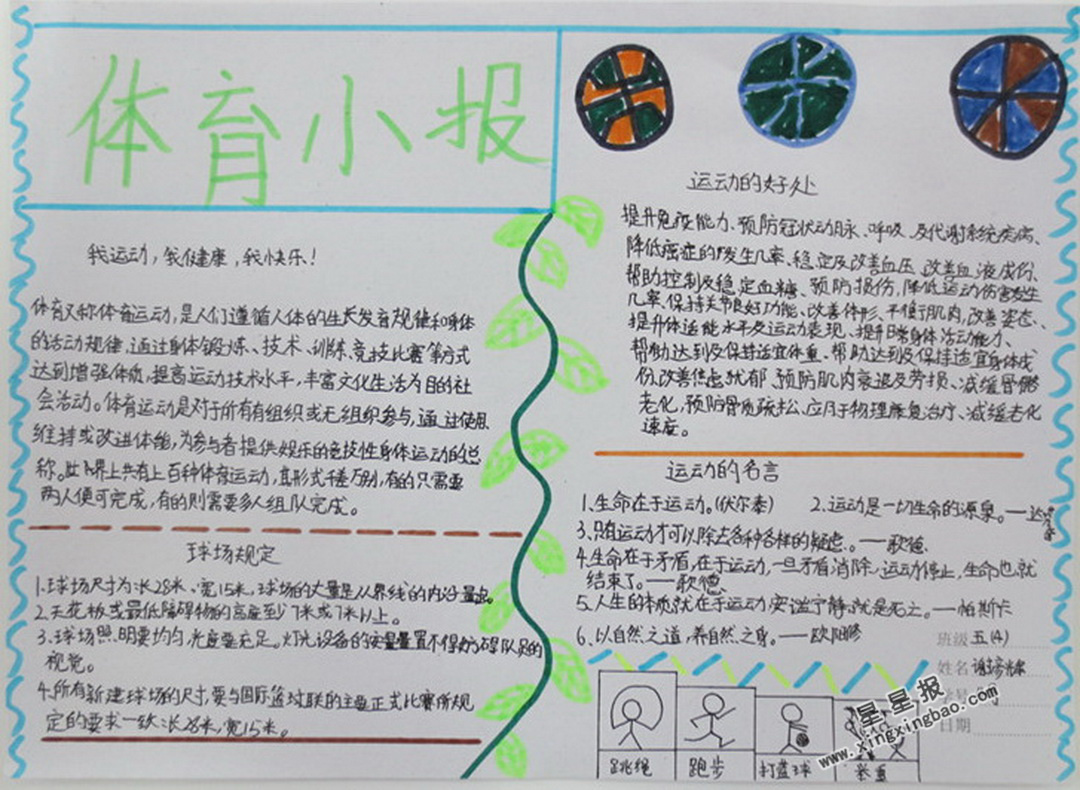 体育小报
我运动，我健康，我快乐！
体育又称体育运动，是人们遵循人体的生长发育规律和身体
的活动规律，通过身体锻炼、技术、训练、竞技比赛等方式
达到增强体质，提高运动技术水平，丰富文化生活为目的社
会活动。体育运动是对于所有有组织或无组织参与，通过使用
维持或改进体能，为参与者提供娱乐的竞技性身体运动的总
称。世界上共有上百种体育运动，其形式千差万别，有的只需要
两人便可完成，有的则需要多人组队完成。
球场规定
1.球场尺寸为:长28米、宽15米。球场的丈量是从界线的内沿量出。
2.天花板或最低障碍物的高度至少7米或7米以上。
3.球场照明要均匀，光度要充足。灯光设备的安置不得妨碍队员的
视觉。
4.所有新建球场的尺寸，要与国际篮球联的主要正式比赛所规
定的要求一致:长28米，宽15米。
运动的好处
提升免疫能力、预防冠状动脉、呼吸及代谢系统疾病、
降低癌症的发生几率、稳定及改善血压、改善血液成份、
帮助控制及稳定血糖、预防损伤，降低运动伤害发生
几率，保持关节良好功能、改善体形、平衡肌肉，改善姿态、
提升体适能水平及运动表现、提升日常身体活动能力、
帮助达到及保持适宜体重、帮助达到及保持适宜身体成
份，改善焦虑忧郁、预防肌肉衰退及劳损、减缓骨骼
老化，预防骨质疏松、应用于物理康复治疗、减缓老化
速度。
运动的名言
1.生命在于运动。(伏尔泰)
2.运动是一切生命的源泉。——达芬奇
3.只有运动才可以除去各种各样的疑虑。——歌德
4.生命在于矛盾，在于运动，一旦矛盾消除，运动停止，生命也就
结束了。——歌德
5.人生的本质就在于运动，安谧宁静就是死亡。——帕斯卡
6.以自然之道，养自然之身。——欧阳修
班级 五(4)
姓名
学号
日期
跳绳
跑步
打篮球
举重
星星报
www.xingxingbao.com